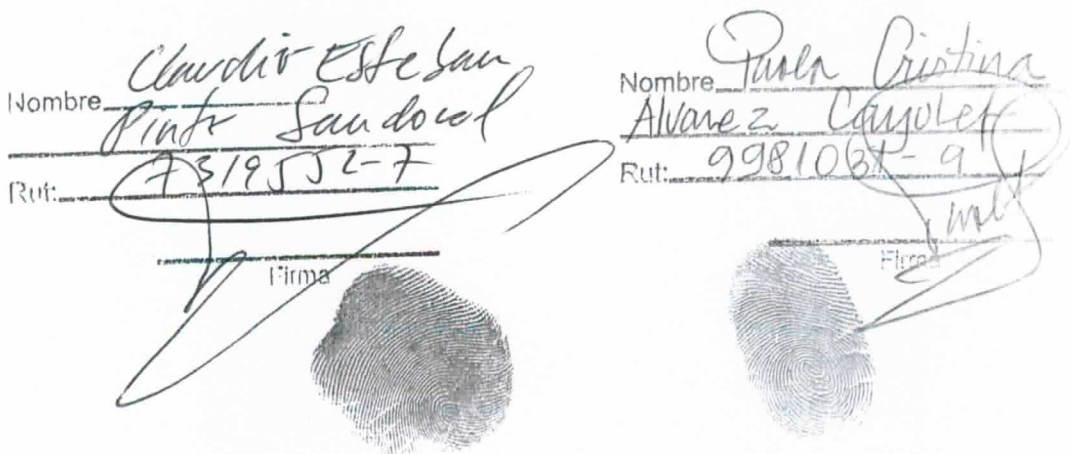 Nombre Claudio Esteban
Pinto Sandoval
Rut: 7319552-7
Firma
Nombre Paola Cristina
Alvarez Cayulef
Rut: 9981031-9
Firma